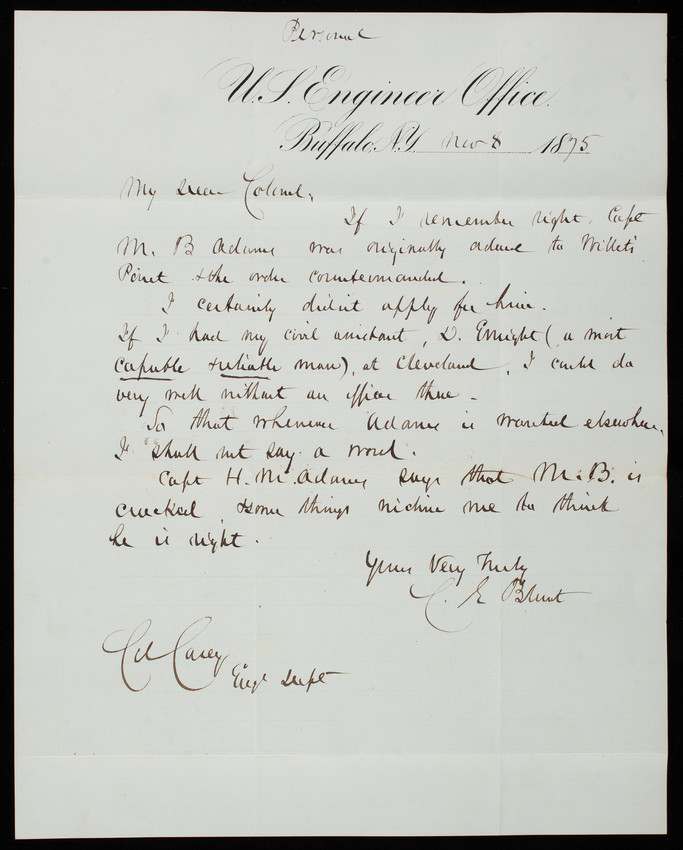 Personal
U.S. Engineer Office.
Buffalo, N.Y. Nov 8 1875
My Dear Colonel,
If I remember right, Capt
M. B Adams was originally to Willets
Point & the order countermanded.
I certainly didnt apply for him.
If I had my civil assistant, D. Emright (a most
capable & reliable man), at Cleveland, I could do
very well without an officer there -
So that whenever Adams is wanted elsewhere,
I shall not say a word.
Capt H. M. Adams says that M. B. is
cracked & some things incline me to think
he is right.
Yours Very Truly
C. E Blunt
Col Casey
Engr Dept